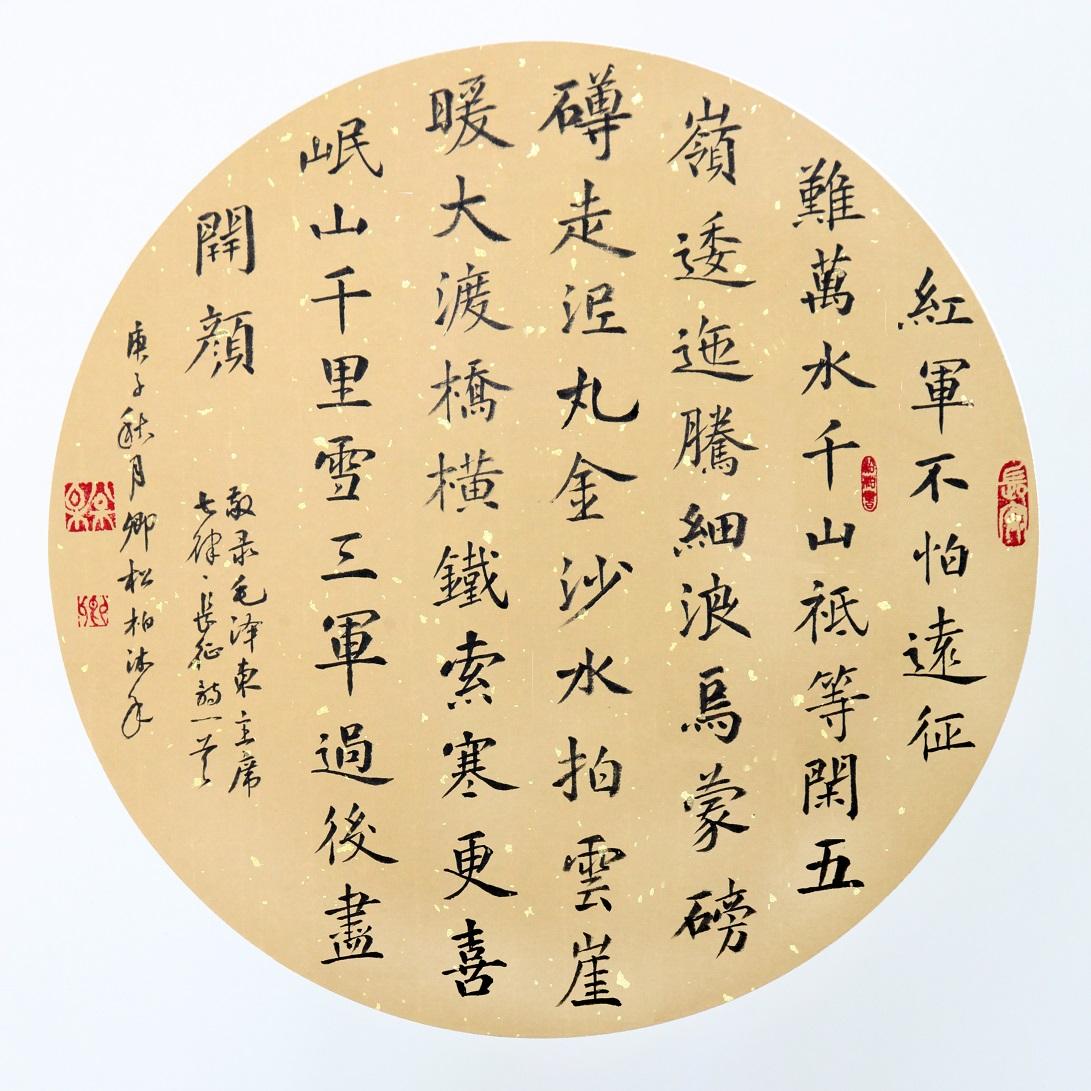 紅軍不怕遠征
難萬水千山祗等閑五
嶺逶迤騰細浪烏蒙磅
礴走泥丸金沙水拍雲崖
暖大渡橋橫鐵索寒更喜
岷山千里雪三軍過後盡
開顏
敬录毛泽東主席
七律·長征詩一首
庚子秋月卿松柏沐手